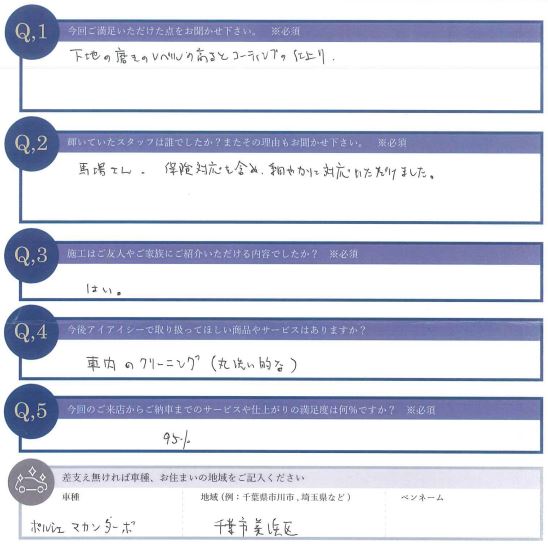 Q,1 今回ご満足いただけた点をお聞かせ下さい。 ※必須
下地の磨きのレベルの高さとコーティングの仕上り.
Q,2 輝いていたスタッフは誰でしたか？またその理由もお聞かせ下さい。 ※必須
馬場さん。 保険対応も含め、細やかに対応いただけました。
Q,3 施工はご友人やご家族にご紹介いただける内容でしたか？ ※必須
はい。
Q,4 今後アイアイシーで取り扱ってほしい商品やサービスはありますか？
車内のクリーニング(丸洗い的な)
Q,5 今回のご来店からご納車までのサービスや仕上がりの満足度は何％ですか？ ※必須
95%
差支え無ければ車種、お住まいの地域をご記入ください
車種 地域（例：千葉県市川市、埼玉県など） ペンネーム
ポルシェ マカンターボ 千葉市美浜区